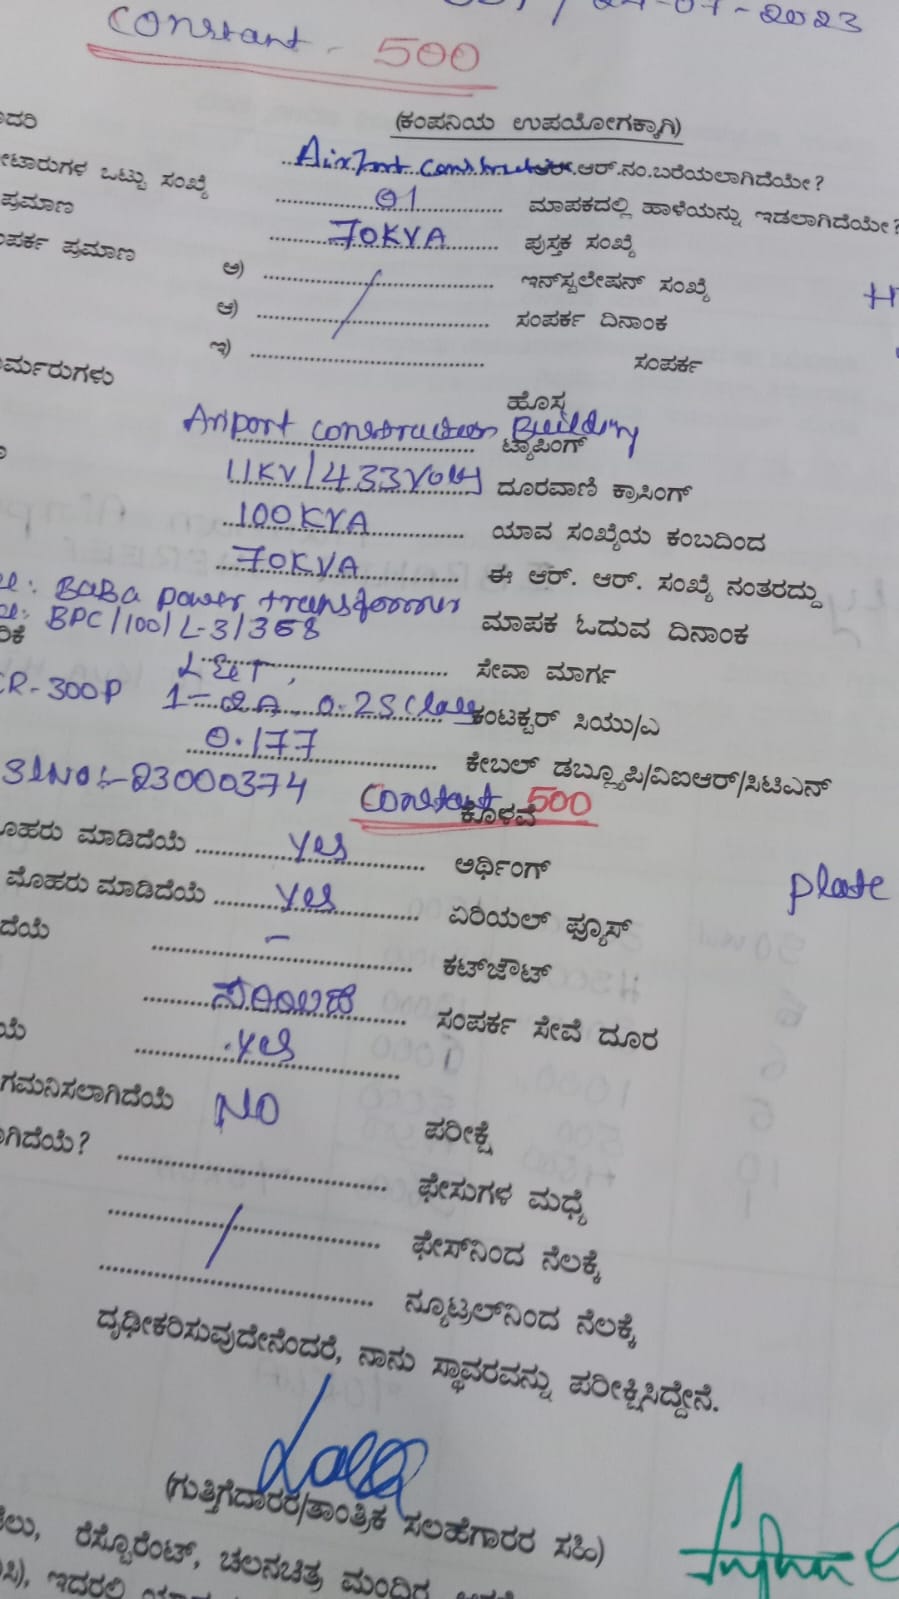 24-07-2023
Constant - 500
(ಕಂಪನಿಯ ಉಪಯೋಗಕ್ಕಾಗಿ)
Airport Construction ಆರ್.ನಂ.ಬರೆಯಲಾಗಿದೆಯೇ?
ಒಟ್ಟು ಸಂಖ್ಯೆ 01 ಮಾಪಕದಲ್ಲಿ ಹಾಳೆಯನ್ನು ಇಡಲಾಗಿದೆಯೇ?
ಪ್ರಮಾಣ 70KVA ಪುಸ್ತಕ ಸಂಖ್ಯೆ
ಪ್ರಮಾಣ ಅ) ಇನ್‌ಸ್ಟಲೇಷನ್ ಸಂಖ್ಯೆ
ಆ) ಸಂಪರ್ಕ ದಿನಾಂಕ
ಇ) ಸಂಪರ್ಕ
ಹೊಸ
Ariport construction Building ಟ್ಯಾಪಿಂಗ್
11KV/433Volt ದೂರವಾಣಿ ಕ್ರಾಸಿಂಗ್
100KVA ಯಾವ ಸಂಖ್ಯೆಯ ಕಂಬದಿಂದ
70KVA ಈ ಆರ್. ಆರ್. ಸಂಖ್ಯೆ ನಂತರದ್ದು
BaBa power transformer
BPC/100/L-3/368 ಮಾಪಕ ಓದುವ ದಿನಾಂಕ
L&T, ಸೇವಾ ಮಾರ್ಗ
ER-300P 1-2A, 0.2S Class ಕಂಟಕ್ಟರ್ ಸಿಯು/ಎ
0.177 ಕೇಬಲ್ ಡಬ್ಲ್ಯೂಪಿ/ವಿಐಆರ್/ಸಿಟಿಎನ್
SlNO:-23000374 Constant 500 ಕೊಳವೆ
ಮಾಡಿದೆಯೆ yes ಅರ್ಥಿಂಗ್ Plate
ಮೊಹರು ಮಾಡಿದೆಯೆ yes ಏರಿಯಲ್ ಫ್ಯೂಸ್
- ಕಟ್‌ಔಟ್
ಸಂಪರ್ಕ ಸೇವೆ ದೂರ
yes
ಗಮನಿಸಲಾಗಿದೆಯೆ NO ಪರೀಕ್ಷೆ
ಫೇಸುಗಳ ಮಧ್ಯೆ
ಫೇಸ್‌ನಿಂದ ನೆಲಕ್ಕೆ
ನ್ಯೂಟ್ರಲ್‌ನಿಂದ ನೆಲಕ್ಕೆ
ದೃಢೀಕರಿಸುವುದೇನೆಂದರೆ, ನಾನು ಸ್ಥಾವರವನ್ನು ಪರೀಕ್ಷಿಸಿದ್ದೇನೆ.
(ಗುತ್ತಿಗೆದಾರರ/ತಾಂತ್ರಿಕ ಸಲಹೆಗಾರರ ಸಹಿ)
ರೆಸ್ಟೊರೆಂಟ್, ಚಲನಚಿತ್ರ ಮಂದಿರ
ಇದರಲ್ಲಿ